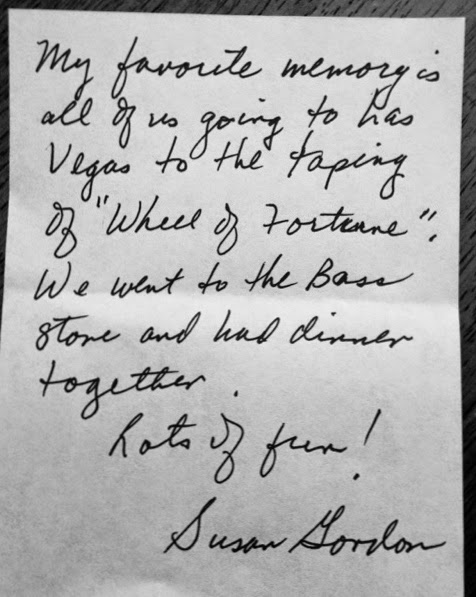 My favorite memory is
all of us going to Las
Vegas to the taping
of "Wheel of Fortune".
We went to the Bass
store and had dinner
together.
Lots of fun!
Susan Gordon